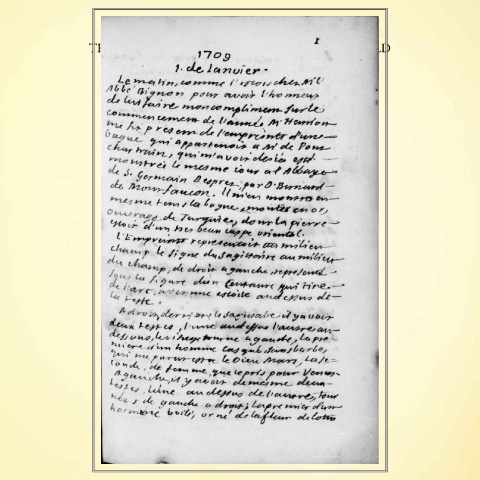 TH
LD
1
1709
1. de Ianvier.
Le matin, comme i'estois chez Mr l'
Abbé Bignon pour avoir l'honneur
de luy faire mon compliment sur le
commencement de l'année, Mr Hanson
me fit present de l'empreinte d'une
bague qui appartenoit a Mr de Pont
chartrain, qui m'avoit desia esté
monstrée le mesme iour a l'Abbaye
de S. Germain Desprez par D. Bernard
de Montfaucon. L'un en monstra en
mesme tems la bague, montée en or,
ouvrage de Turquie, dont la pierre
estoit d'un tres beau iaspe oriental.
L'Empreinte representoit au milieu
champ le signe du Sagittaire au milieu
du champ, de droit a gauche, representé
sous la figure d'un Centaure qui tire
de l'arc, avec une estoile au dessus de
la teste.
A droit, derriere le sagittaire il y avoit
deux testes, l'une au dessus l'autre au
dessous, tournée a gauche, la pre
miere d'un homme casqué sans barbe,
qui me parut estre le Dieu Mars, la se
conde, de femme, que ie pris pour Venus.
A gauche, il y avoit de mesme deux
testes, l'une au dessus de l'autre, tour
nées de gauche a droit; la premier d'un
homme orné de la fleur de lotus